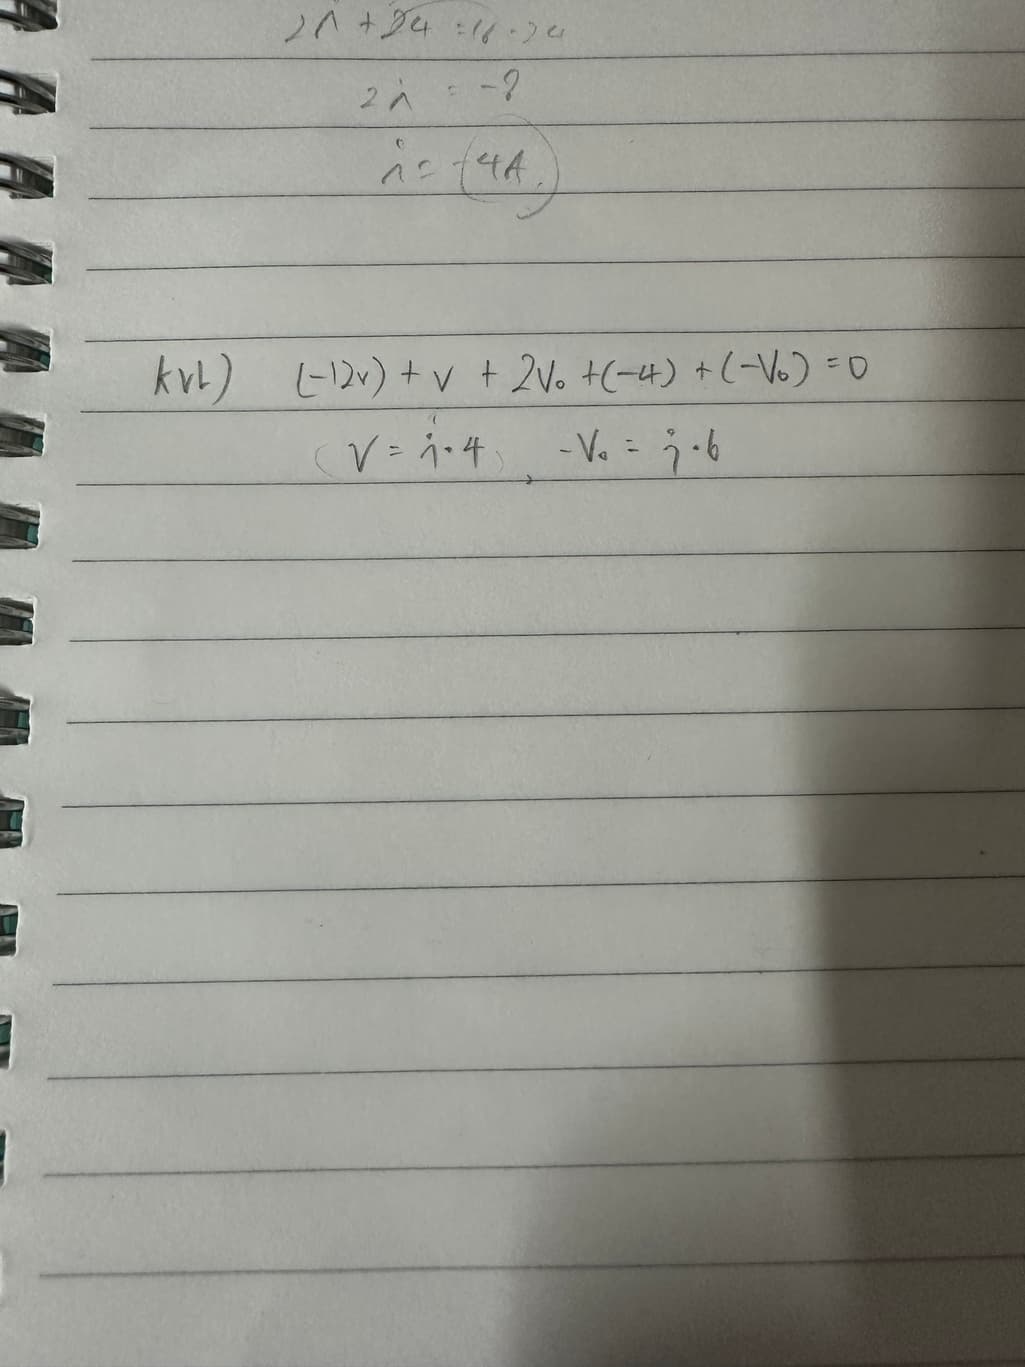 2i + 24 = 16 - 24
2i = -8
i = -4A.
kVL) (-12v) + v + 2V₀ + (-4) + (-V₀) = 0
(V = i·4), -V₀ = i·6